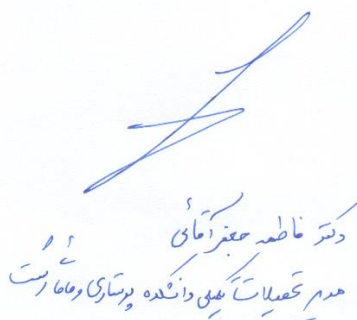 دکتر فاطمه جعفر آقائی
مدیر تحصیلات تکمیلی دانشکده پرستاری و مامائی رشت